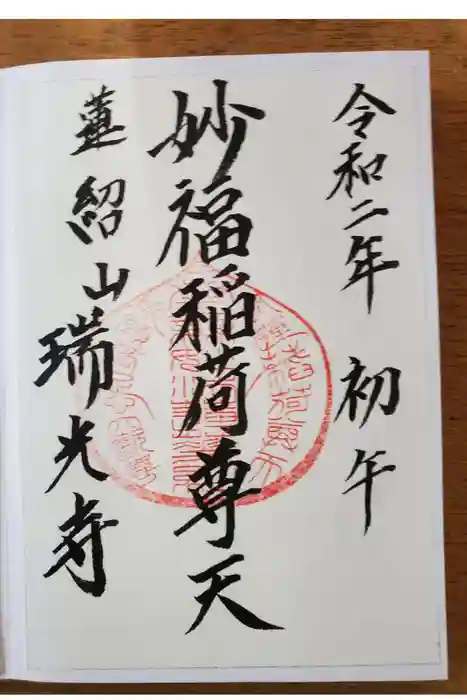 令和二年 初午
妙福稲荷尊天
蓮紹山瑞光寺